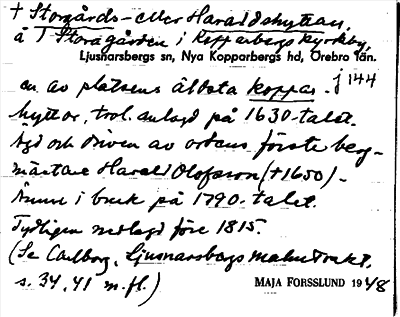 † Storgårds- eller Haraldshyttan,
å † Storgården i Kopparbergs kyrkby,
Ljusnarsbergs sn, Nya Kopparbergs hd, Örebro län.
j 144
en av platsens äldsta koppar-
hyttor, trol. anlagd på 1630-talet.
Ägd och driven av ortens förste berg-
mästare Harald Olofsson (†1650).
Ännu i bruk på 1790-talet.
Tydligen nedlagd före 1815.
(Se Carlborg, Ljusnarsbergs malmtrakt,
s. 34, 41 m.fl.)
MAJA FORSSLUND 1948